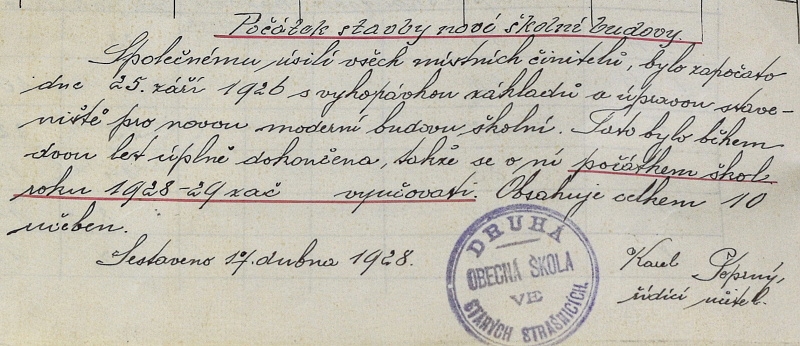 Počátek stavby nové školní budovy.
Společnému úsilí všech místních činitelů, bylo započato
dne 25. září 1926 s vykopávkou základů a úpravou stave-
niště pro novou moderní budovu školní. Tato byla během
dvou let úplně dokončena, takže se v ní počátkem škol.
roku 1928-29 zač vyučovati. Obsahuje celkem 10
učeben.
Sestaveno 17. dubna 1928.
Karel
řídící učitel.
DRUHÁ
OBECNÁ ŠKOLA
VE
STARÝCH STRAŠNICÍCH.